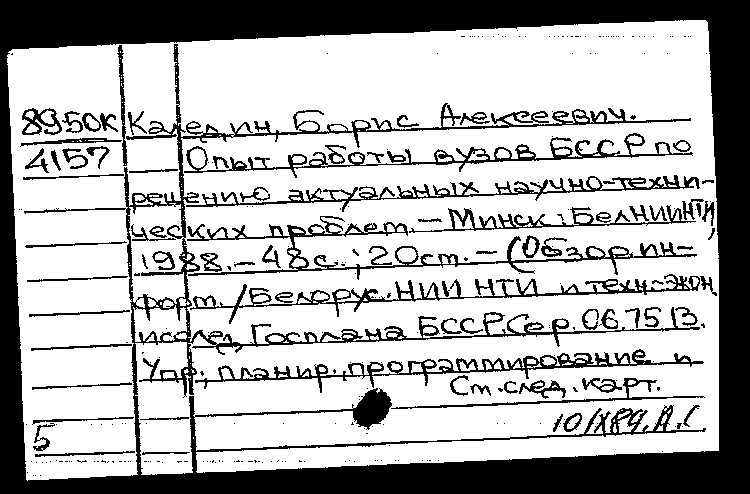 89-50К Каледин, Борис Алексеевич.
4157 Опыт работы вузов БССР по
решению актуальных научно-техни-
ческих проблем. – Минск: БелНИИНТИ,
1988. – 48 с.; 20 см. – (Обзор. ин-
форм. / Белорус. НИИ НТИ и техн.-экон.
исслед. Госплана БССР. Сер. 06.75.13.
Упр., планир., программирование и
См. след. карт.
5 10/IX89. А.С.